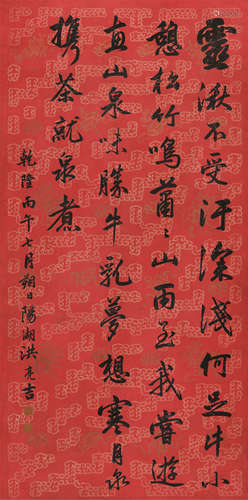 靈湫不受汙深淺何足計小
憩松竹鳴蕭〻山雨至我嘗遊
惠山泉味勝牛乳夢想寒月
携茶就泉煮
乾隆丙午七月朔日陽湖洪亮吉